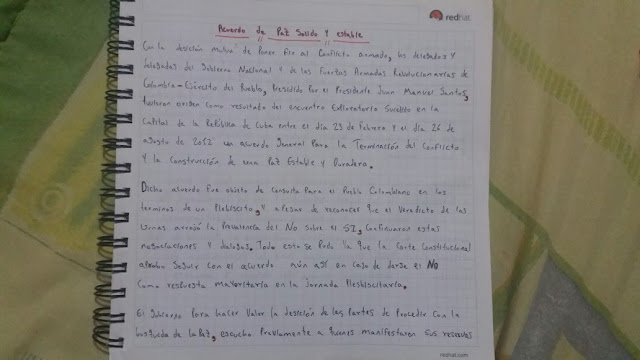 redhat
Acuerdo de Paz Solido Y estable
Con la desición mutua de Poner fin al Conflicto armado, los delegados y
delegadas del Gobierno Nacional y de las Fuerzas Armadas Revolucionarias de
Colombia - Ejército del Pueblo, Presidido Por el Presidente Juan Manuel Santos,
tuvieron origen como resultado del encuentro Exploratorio Sucedido en la
Capital de la República de Cuba entre el día 23 de febrero y el día 26 de
agosto de 2012 un acuerdo General Para la Terminación del Conflicto
Y la Construcción de una Paz Estable y Duradera.
Dicho acuerdo fue objeto de Consulta Para el Pueblo Colombiano en los
terminos de un Plebiscito, y apesar de reconocer que el Veredicto de las
Urnas arrojó la Prevalencia del No sobre el SI, Continuaron estas
negociaciones y dialogos. Todo esto se Pudo Ya que la Corte Constitucional
aprobo Seguir con el acuerdo aún así en caso de darse el No
Como respuesta Mayoritaria en la Jornada Plesbicitaria.
El Gobierno Para hacer Valer la desición de las Partes de Proceder Con la
busqueda de la Paz, escucho Previamente a quienes manifestaron sus reservas
redhat.com